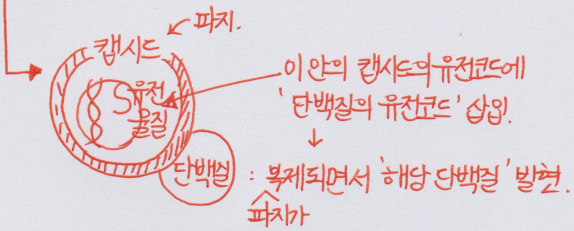 파지.
캡시드
유전
물질
이 안의 캡시드의 유전코드에
'단백질의 유전코드' 삽입.
단백질
: 복제되면서 '해당 단백질' 발현.
파지가